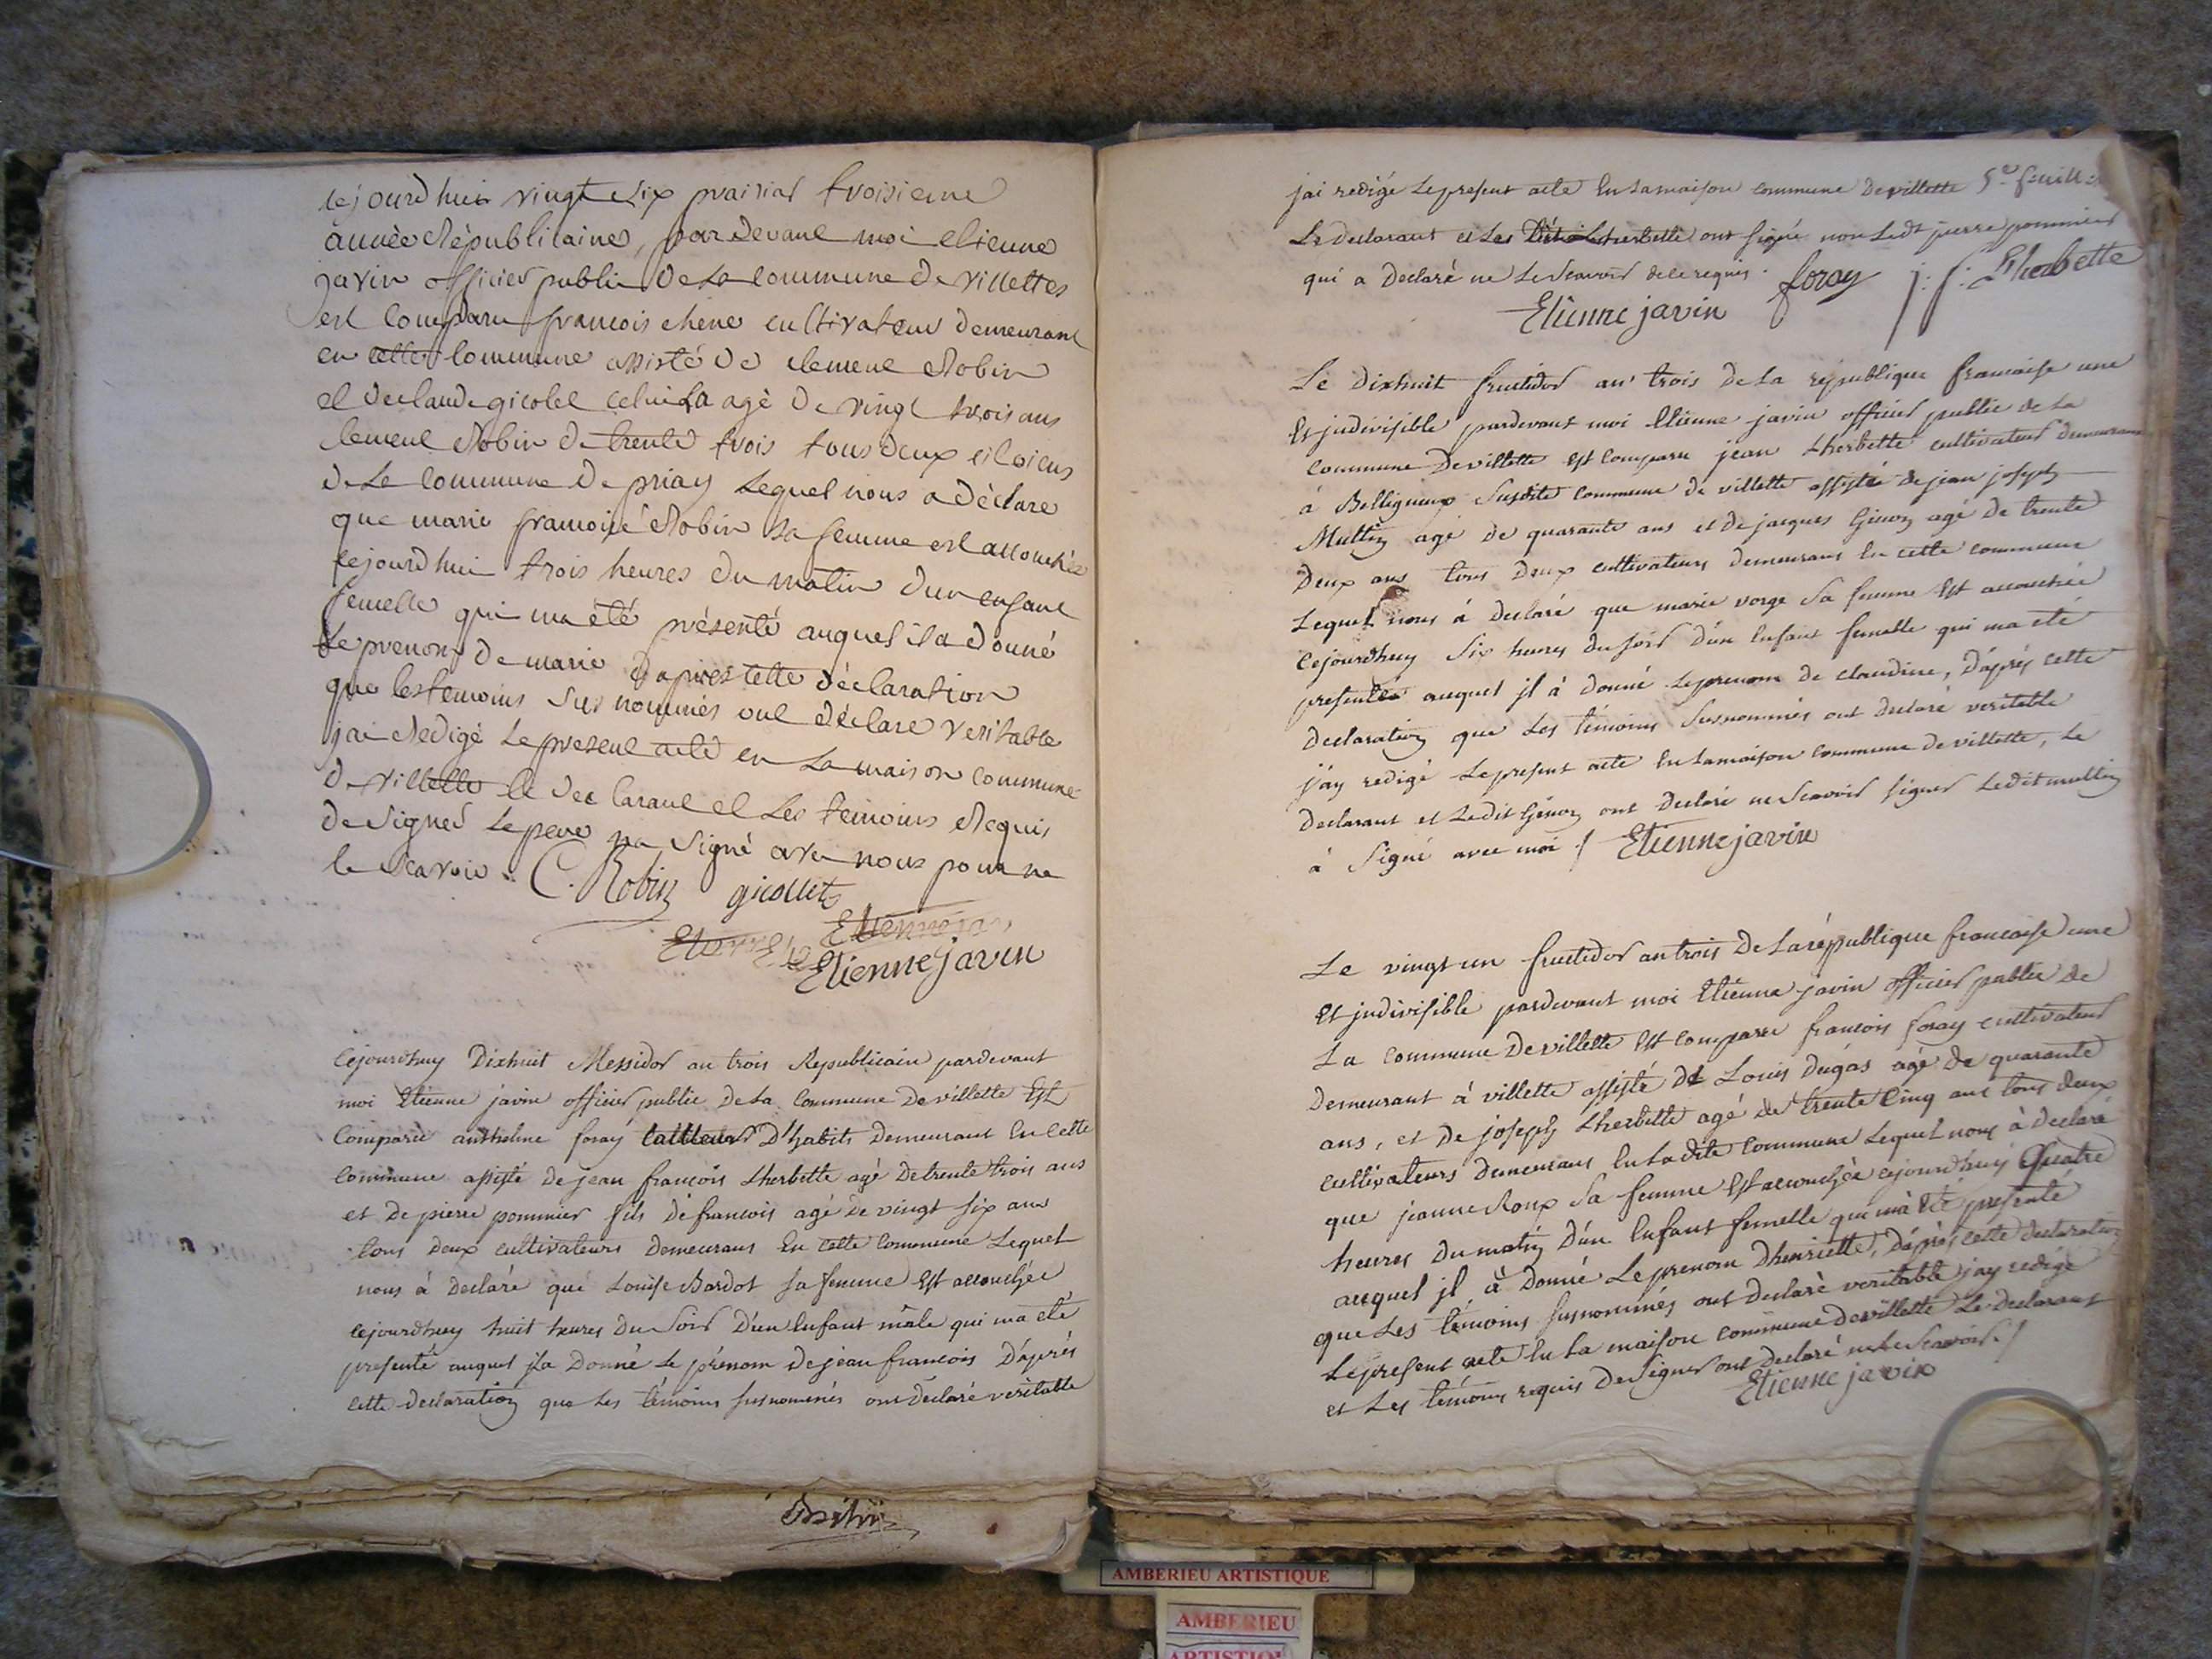 cejourdhui vingt six prairial troisieme
année Républicaine, par devant moi etienne
javin officier public de la commune de villettes
est comparu francois chene cultivateur demeurant
en cette commune assisté de clement Robin
et de claude gicolet celui la agé de vingt trois ans
clement Robin de trente trois tous deux citoiens
de la commune de priay Lequel nous a déclare
que marie francoise Robin sa femme est accouchée
cejourd'hui trois heures du matin d'un enfant
femelle qui ma été présenté auquel il a donné
le prenom de marie d'apres cette déclaration
que les temoins sus nommés ont déclare veritable
jai Redigé le present acte en la maison commune
de villette le declarant et les temoins Requis
de signer le pere na signé avec nous pour ne
le scavoir. C. Robin gicollet
Etienne jav
Etienne javin
Cejourdhuy Dixhuit Messidor an trois Republicain pardevant
moi Etienne javin officier public de La Commune de villette Est
Comparu anthelme foray tailleur D'habits Demeurant En Cette
Commune assisté de jean françois Lherbette agé de trente trois ans
et de pierre pommier fils de francois agé de vingt six ans
tous deux cultivateurs demeurans En cette Commune Lequel
nous à declaré que Louise Bardot sa femme Est accouchée
cejourdhuy huit heures du soir D'un Enfant mâle qui ma eté
presenté auquel jla Donné Le prénom de jean francois D'après
cette declaration que Les témoins susnommés ont declaré veritable
jai redigé Le present acte En La maison commune de villette 5e feuillet
Le declarant et Les Lherbette ont signé non Ledt pierre pommier
qui a Declaré ne Le scavoir de ce requis. foray j. f. Lherbette
Etienne javin
Le dixhuit fructidor an trois de La république francaise une
Et jndivisible pardevant moi Etienne javin officier public de La
Commune de villette Est Comparu jean Lherbette cultivateur demeurant
à Belligneux susdite commune de villette assisté de jean joseph
Multin agé de quarante ans et de jacques Genoz agé de trente
deux ans tous deux cultivateurs demeurans En cette commune
Lequel nous à declaré que marie vorge sa femme Est accouchée
cejourdhuy six heures du soir d'un Enfant femelle qui ma eté
presenté auquel jl à donné Le prenom de claudine, D'après cette
declaration que Les témoins susnommés ont declaré veritable
j'ay redigé Le present acte En La maison commune de villette, Le
declarant et Ledit Genoz ont declaré ne scavoir signer Ledit multin
à signé avec moi ./ Etienne javin
Le vingt un fructidor an trois de La république francaise une
Et jndivisible pardevant moi Etienne javin officier public de
La commune de villette Est comparu francois foray cultivateur
demeurant à villette assisté de Louis Dugas agé de quarante
ans, et de joseph Lherbette agé de trente cinq ans tous deux
cultivateurs demeurans En La dite commune Lequel nous à declaré
que jeanne Roux sa femme Est accouchée cejourdhuy Quatre
heures du matin d'un Enfant femelle qui mà Eté presenté
auquel jl à Donné Le prenom Dhenriette, D'après cette declaration
que Les témoins susnommés ont declaré veritable jay redigé
Le present acte En La maison commune de villette Le declarant
et Les témoins requis de signer ont declaré ne le scavoir ./
Etienne javin
AMBERIEU ARTISTIQUE
AMBERIEU
ARTISTIQUE